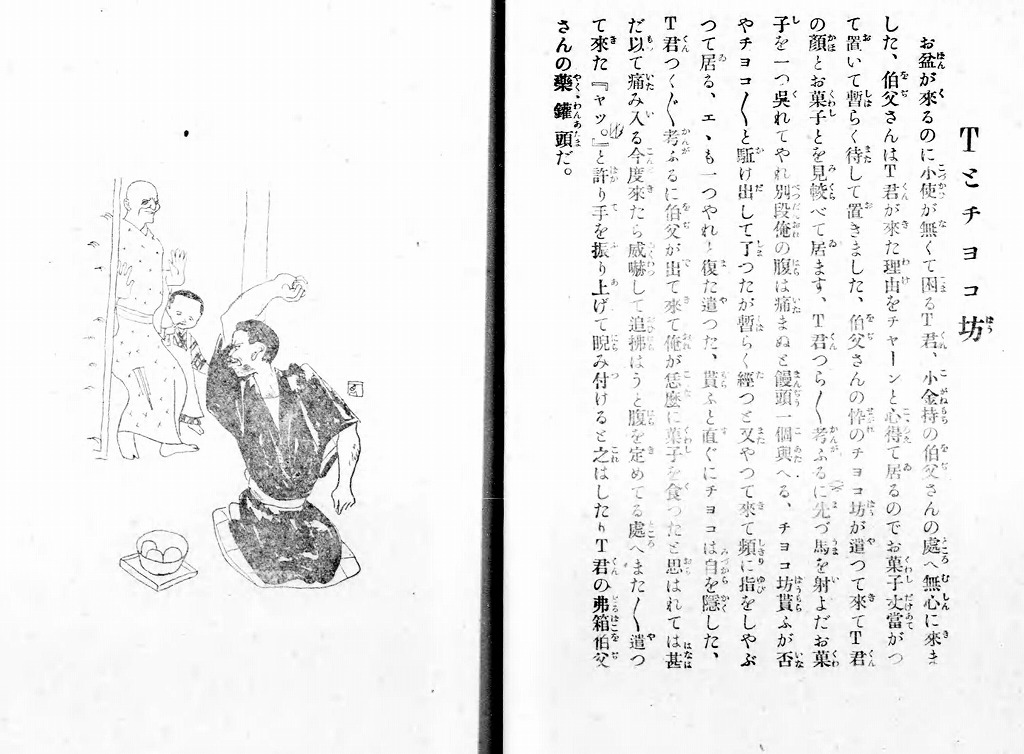 Tとチョコ坊
お盆が來るのに小使が無くて困るT君、小金持の伯父さんの處へ無心に來ま
した、伯父さんはT君が來た理由をチャーンと心得て居るのでお菓子丈當がつ
て置いて暫らく待して置きました、伯父さんの悴のチョコ坊が遣つて來てT君
の顏とお菓子とを見較べて居ます、T君つら〱考ふるに先づ馬を射よだお菓
子を一つ吳れてやれ別段俺の腹は痛まぬと饅頭一個與へる、チョコ坊貰ふが否
やチョコ〱と駈け出して了つたが暫らく經つと又やつて來て頻に指をしやぶ
つて居る、エヽも一つやれと復た遣つた、貰ふと直ぐにチョコは自を隱した、
T君つく〲考ふるに伯父が出て來て俺が恁麼に菓子を食つたと思はれては甚
だ以て痛み入る今度來たら威嚇して追拂はうと腹を定めてる處へまた〱遣つ
て來た『ャッ。』と許り手を振り上げて睨み付けると之はしたりT君の弗箱伯父
さんの藥鑵頭だ。